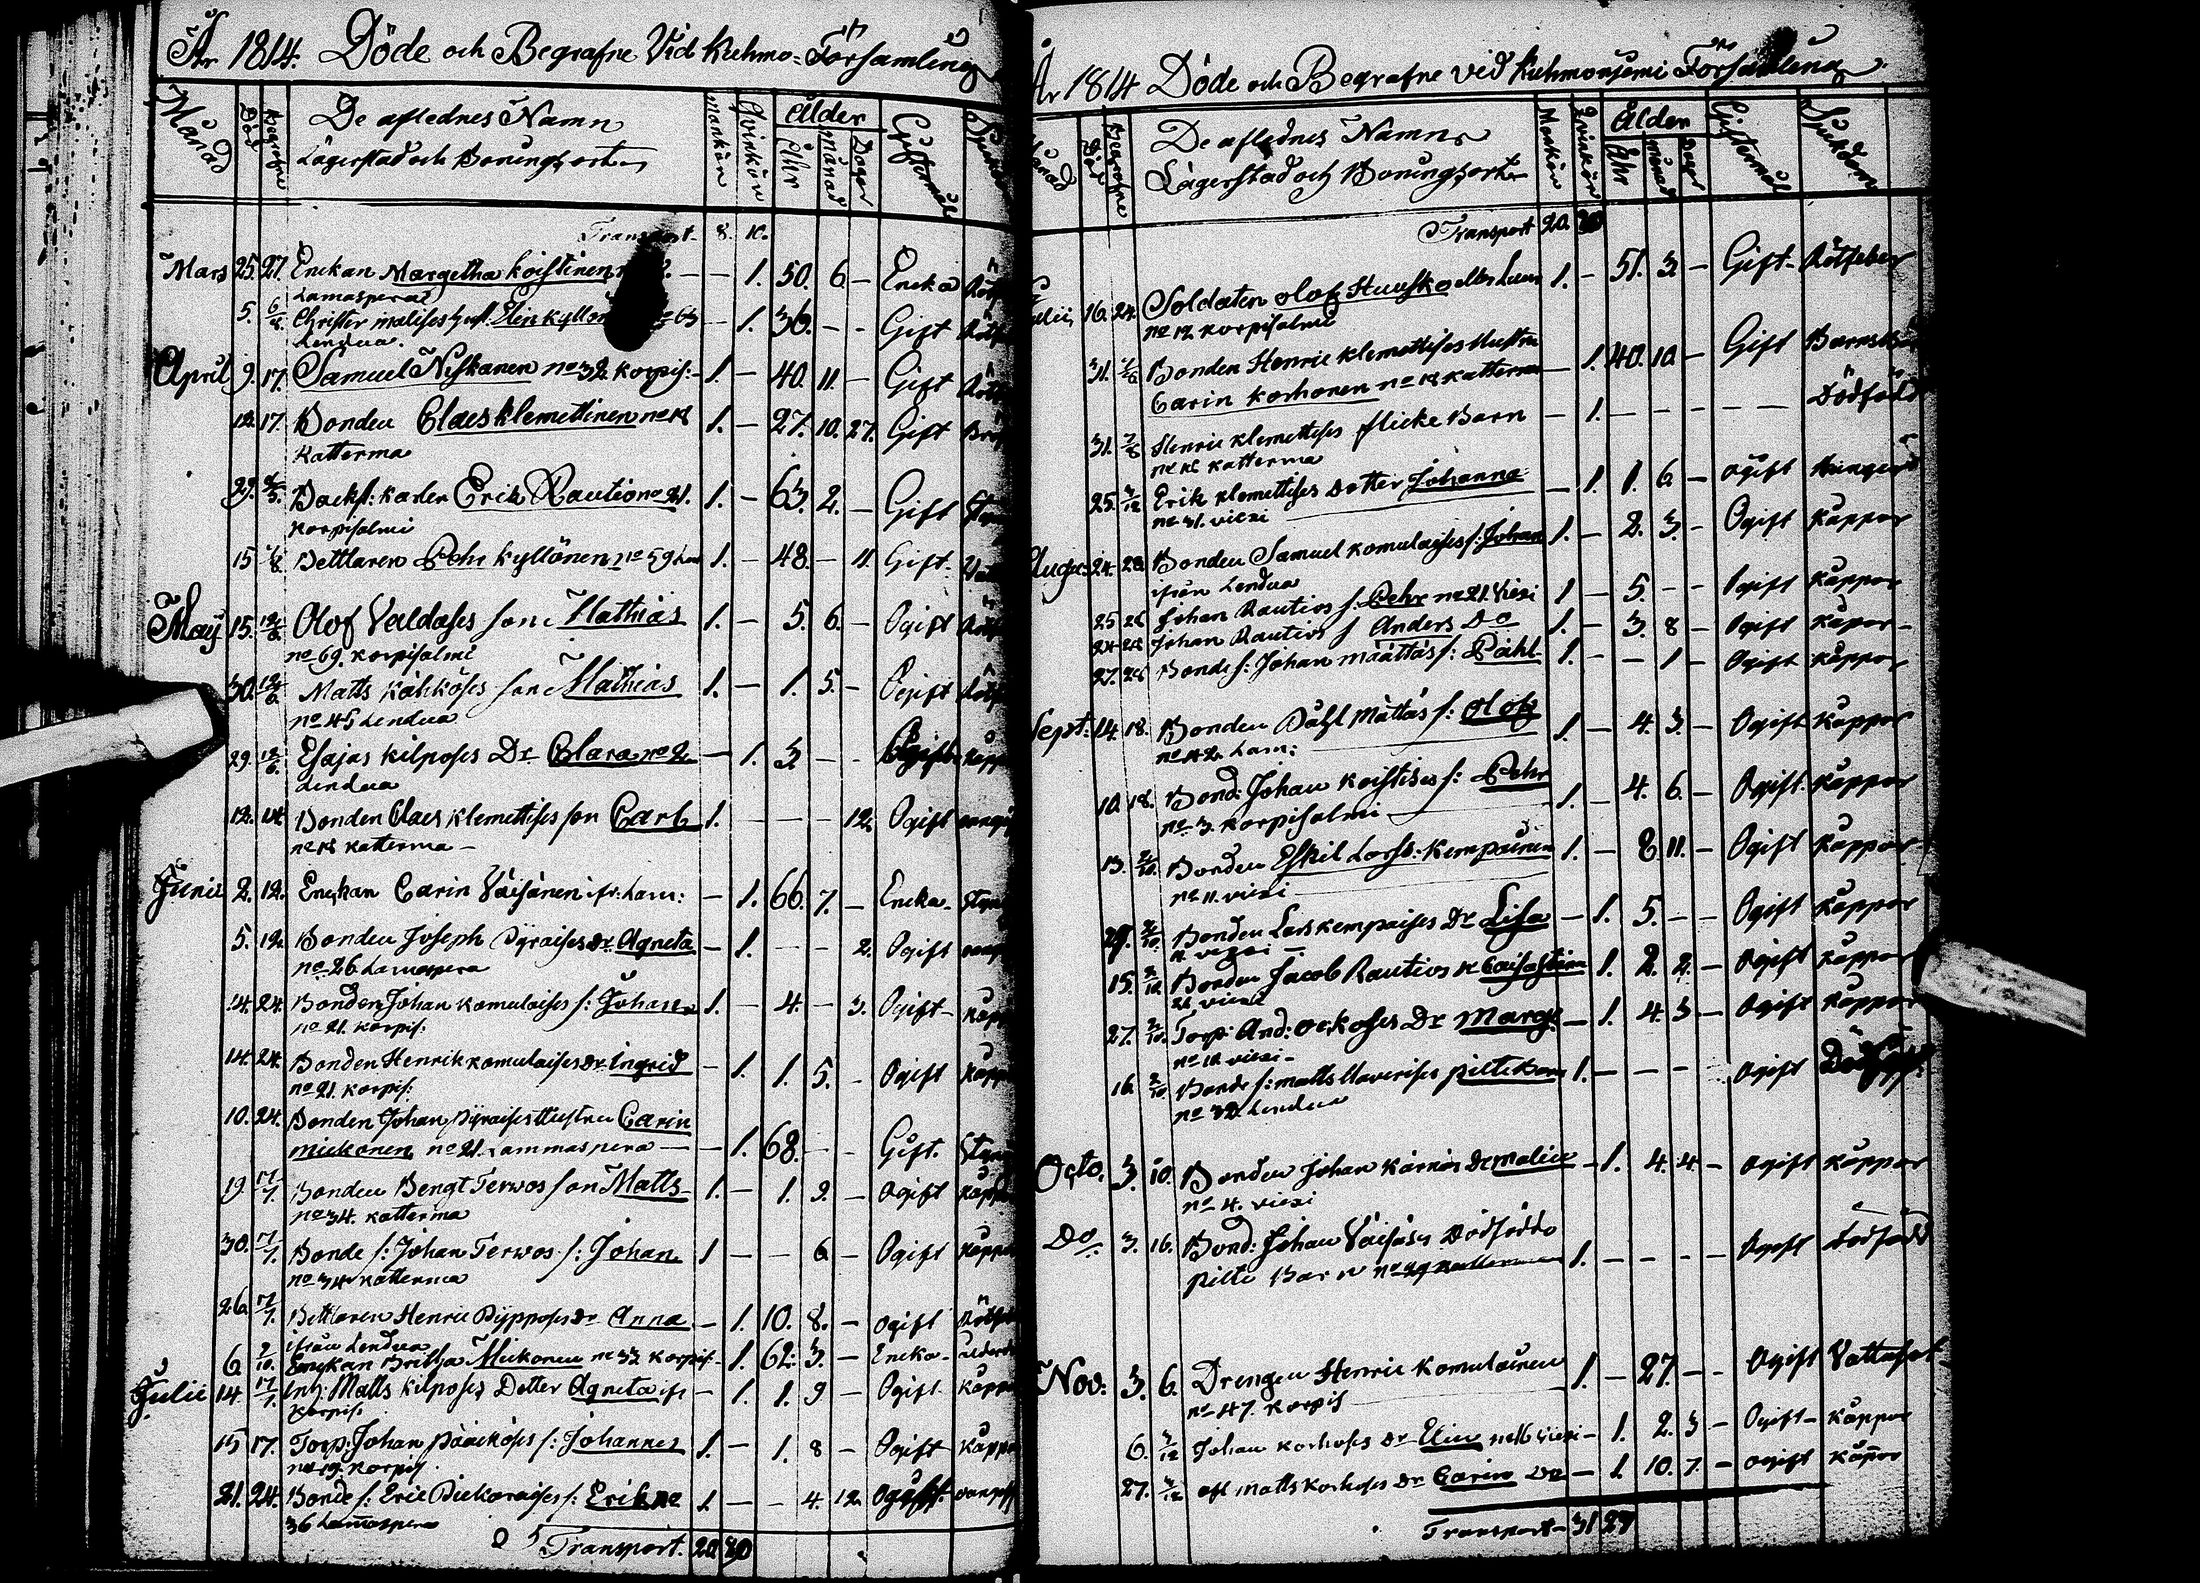 År 1814. Döde och Begrafne Vid Kuhmo-Församling
Månad Död Begrafne De aflednes Namn Lägerstad och Boningsorter Mankön Qvinkön Ålder Åhr Månad Dagar Giftermål
Transport. 8. 10.
Mars 25. 27. Enckan Margetha Koistinen - 1. 50. 6 - Encka
Lamaspera
5. 6/8. Christer Malises hust. Elin 63 - 1. 36. - - Gift
Lendua.
April 9. 17. Samuel Niskanen no 32 Korpis: 1. - 40. 11. - Gift
12. 17. Bonden Claes Klemettinen no 18 1. - 27. 10. 27. Gift
Katterma
29. Backst: karlen Erik Rautio no 21. 1. - 63. 2. - Gift
Korpisalmi
15 Bettlaren Pehr Kyllönen no 59 1. - 48. - 11. Gift.
Maij 15. Olof Valdases son Mathias 1. - 5. 6. - Ogift
no 69. Korpisalmi
30. Matts Kähköses son Mathias 1. - 1. 5. - Ogift
no 45 Lendua
29. 12/6. Esajas Kilposes Dr Clara no 2 - 1. 3 - - Ogift
Lendua
12. 14 Bonden Claes Klemettises son Carl 1. - - - 12. Ogift
no 18 Katterma -
Junii 2. 12. Enckan Carin Väisänen ifr: Lam: - 1. 66. 7. - Encka
5. 12. Bonden Joseph Pyraises Dr Agneta - 1. - - 2. Ogift
no 26 Lamaspera
14. 24. Bonden Johan Komulaises s: Johan 1. - 4. - 3. Ogift
no 21. Korpis:
14. 24. Bonden Henrik Komulaises Dr Ingrid - 1. 1. 5. - Ogift
no 21. Korpis:
10. 24. Bonden Johan Pyraises Hustru Carin
Mickonen no 21. Lammaspera - - 1. 68. - - Gift.
19 17/7. Bonden Bengt Terwos son Matts 1. - 1. 9. - Ogift
no 34. Katterma
30. 17/7. Bonde s: Johan Terwos s: Johan 1 - - 6 - Ogift
no 34 Katterma
26. 17/7. Bettlaren Henric Pypposes dr Anna - 1. 10. 8. - ogift
ifrån Lendua
6 2/10. Enckan Britha Mickonen no 33 Korpis - 1. 62. 3. - Encka -
Julii 14. 17/7. Inh: Matts Kilposes Dotter Agneta ifr - 1. 1. 9 - Ogift
Korpis.
15 17. Torp: Johan Pääiköses s: Johannes 1. - 1. 8 - Ogift
no 19. Korpis.
21. 24. Bonde s: Eric Pickaraises s: Erik no 1. - - 4. 12. Ogift.
36 Lamaspera
Transport. 20 20
År 1814 Döde och Begrafne vid Kuhmoniemi Församling
Månad Död Begrafne De aflednes Namn Lägerstad och Boningsorter Mankön Qvinkön Ålder Åhr Månad Dagar Giftermål Sjukdom
Transport 20.
Julii, 16. 24. Soldaten Olof Huusko 1. - 51. 3. - Gift - Rötfeber
no 12 Korpisalmi
31. Bonden Henric Klemettises Hustru
Carin Korhonen no 18 Katterma - 1. 40. 10. - Gift
31. 7/8 Henric Klemettises flicke Barn - 1. - - - - Dödföd
no 18 Katterma
25. 3/12 Erik Klemettises Dotter Johanna - 1. 1. 6. - ogift
no 31. Viexi
Augu: 24. 28. Bonden Samuel Komulaises s: Johan 1. - 2. 3. - Ogift Kåppor
ifrån Lendua
25 28 Johan Rautios s: Pehr no 21. Viexi 1 - 5. - - Ogift Kåppor
24 28 Johan Rautios s Anders Do 1. - 3. 8 - Ogift Kåpor -
27. 28 Bonde s: Johan Määttäs s: Påhl 1. - - 1 - Ogift Kåppor
Sept: 14. 18. Bonden Påhl Mättäs s: Olof 1. - 4. 3. - Ogift Kåppor
no 42. Lam:
10. 18. Bond: Johan Koistises s: Pehr 1. - 4. 6. - Ogift. Kåppor
no 3. Korpisalmi
13. 2/10. Bonden Eskil Larss: Kempainen 1. - 8. 11. - Ogift Kåppor
no 11. Viexi
29. 2/10. Bonden Lars Kempaises Dr Lisa - 1. 5. - - Ogift Kåppor
11. Viexi -
15. 2/10. Bonden Jacob Rautios Dr Caisa Stina 1. 2. 2. - Ogift Kåppor
21. Viexi
27. 2/10. Torp: And: Ockoses Dr Marg: - 1. 4. 3 - Ogift Kåppor
no 10 Viexi -
16. 2/10 Bonde s: Matts Haverises piltebarn 1. - - - - Ogift
no 32 Lendua
Octo. 3. 10. Bonden Johan Kärnäs Dr Malin - 1. 4. 4. - ogift Kåppor
no 4. Viexi
Do 3. 16. Bond: Johan Väisäses Dödfödde
pilte Barn no 29 Katterma 1. - - - - Ogift dödfödd
Nov: 3. 6. Drengen Henric Komulainen 1. - 27. - - Ogift Vattusot
no 47. Korpis
6. 3/12 Johan Korhoses dr Elin no 16 Viexi - 1. 2. 3 - Ogift - Kåppor
27. 3/12 afl Matts Korhoses dr Carin Do - 1. 10. 7. - ogift Kåppor
Transport - 31 27